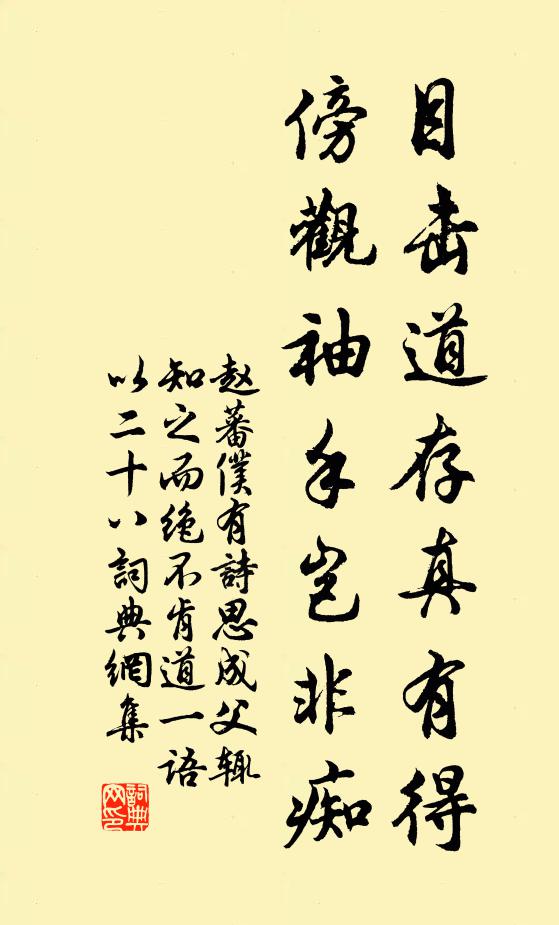 目击道存真有得
傍觀袖手岂非痴
赵蕃僕有詩思成父輒
知之而绝不肯道一语
以二十八詞典網集
詞典網印